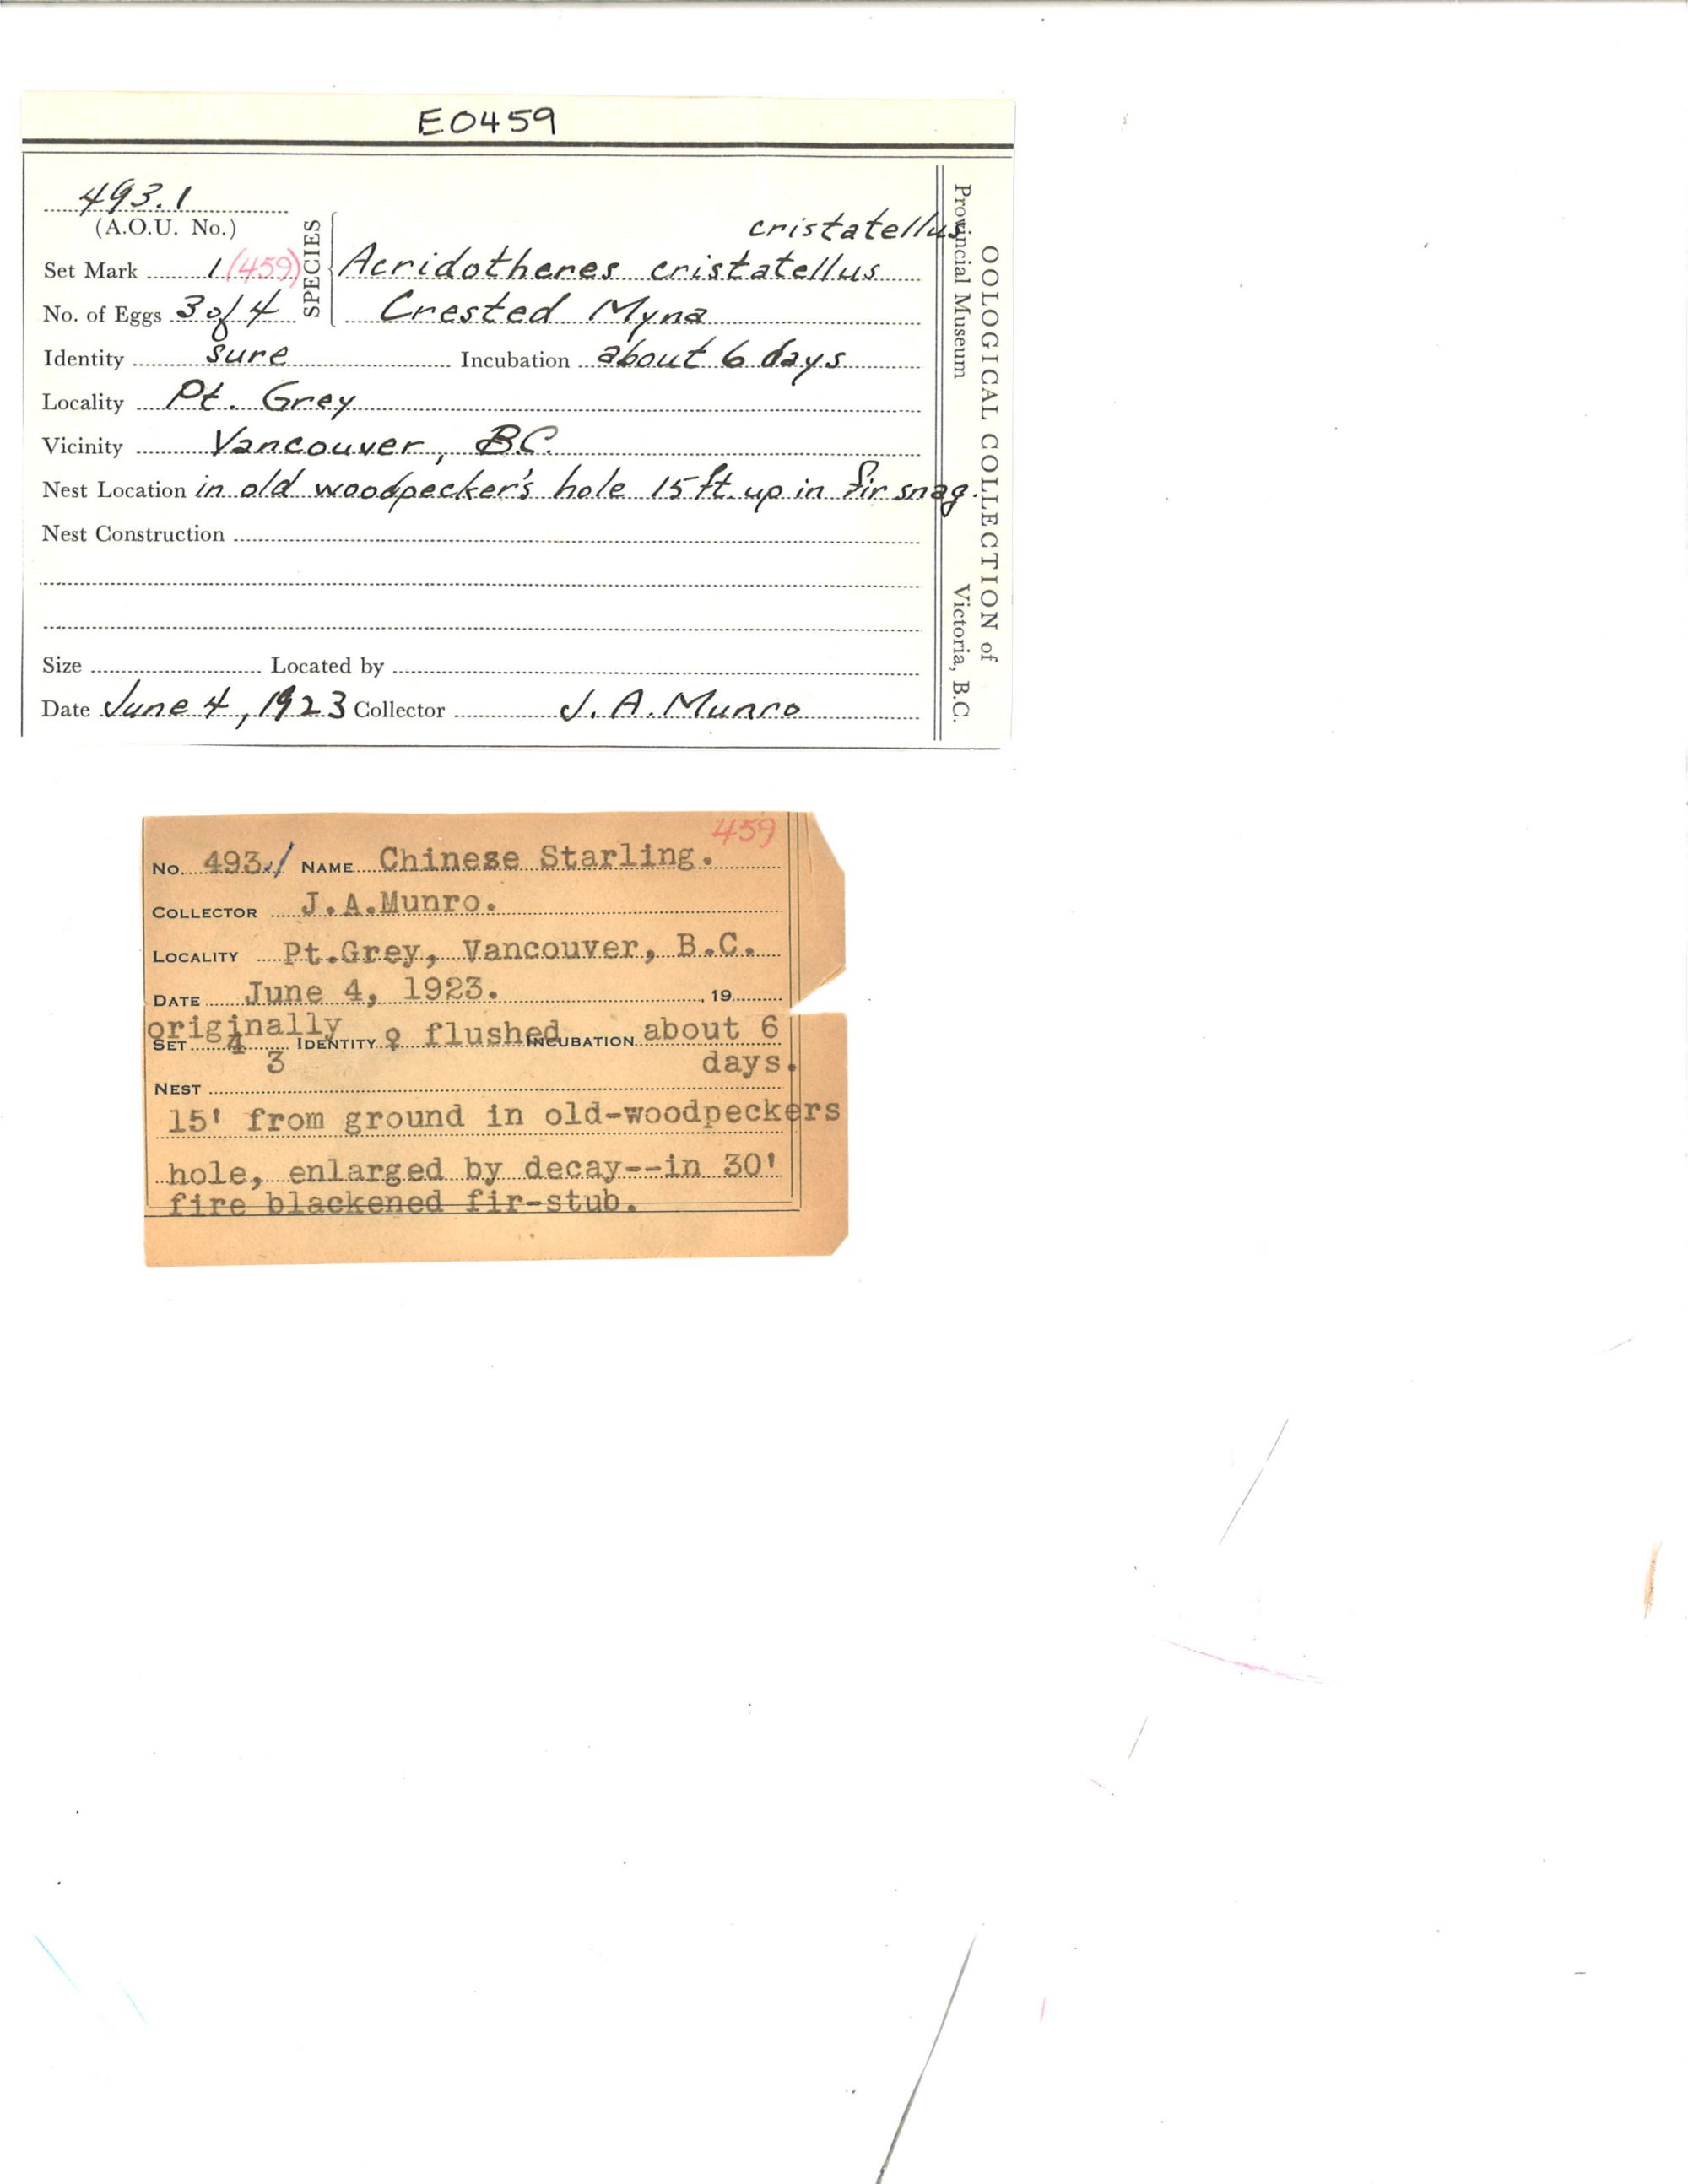 E0459
493.1
(A.O.U. No.)
SPECIES
cristatellus
Set Mark 1 (459) Acridotheres cristatellus
No. of Eggs 3 of 4 Crested Myna
Identity sure Incubation about 6 days
Locality Pt. Grey
Vicinity Vancouver, B.C.
Nest Location in old woodpecker's hole 15 ft. up in fir snag.
Nest Construction
Size Located by
Date June 4, 1923 Collector J. A. Munro
OOLOGICAL COLLECTION of
Provincial Museum Victoria, B.C.
459
No. 493./ NAME Chinese Starling.
COLLECTOR J.A.Munro.
LOCALITY Pt.Grey, Vancouver, B.C.
DATE June 4, 1923. , 19
originally
SET 4 IDENTITY ♀ flushed INCUBATION about 6
3 days.
NEST
15' from ground in old-woodpeckers
hole, enlarged by decay--in 30'
fire blackened fir-stub.